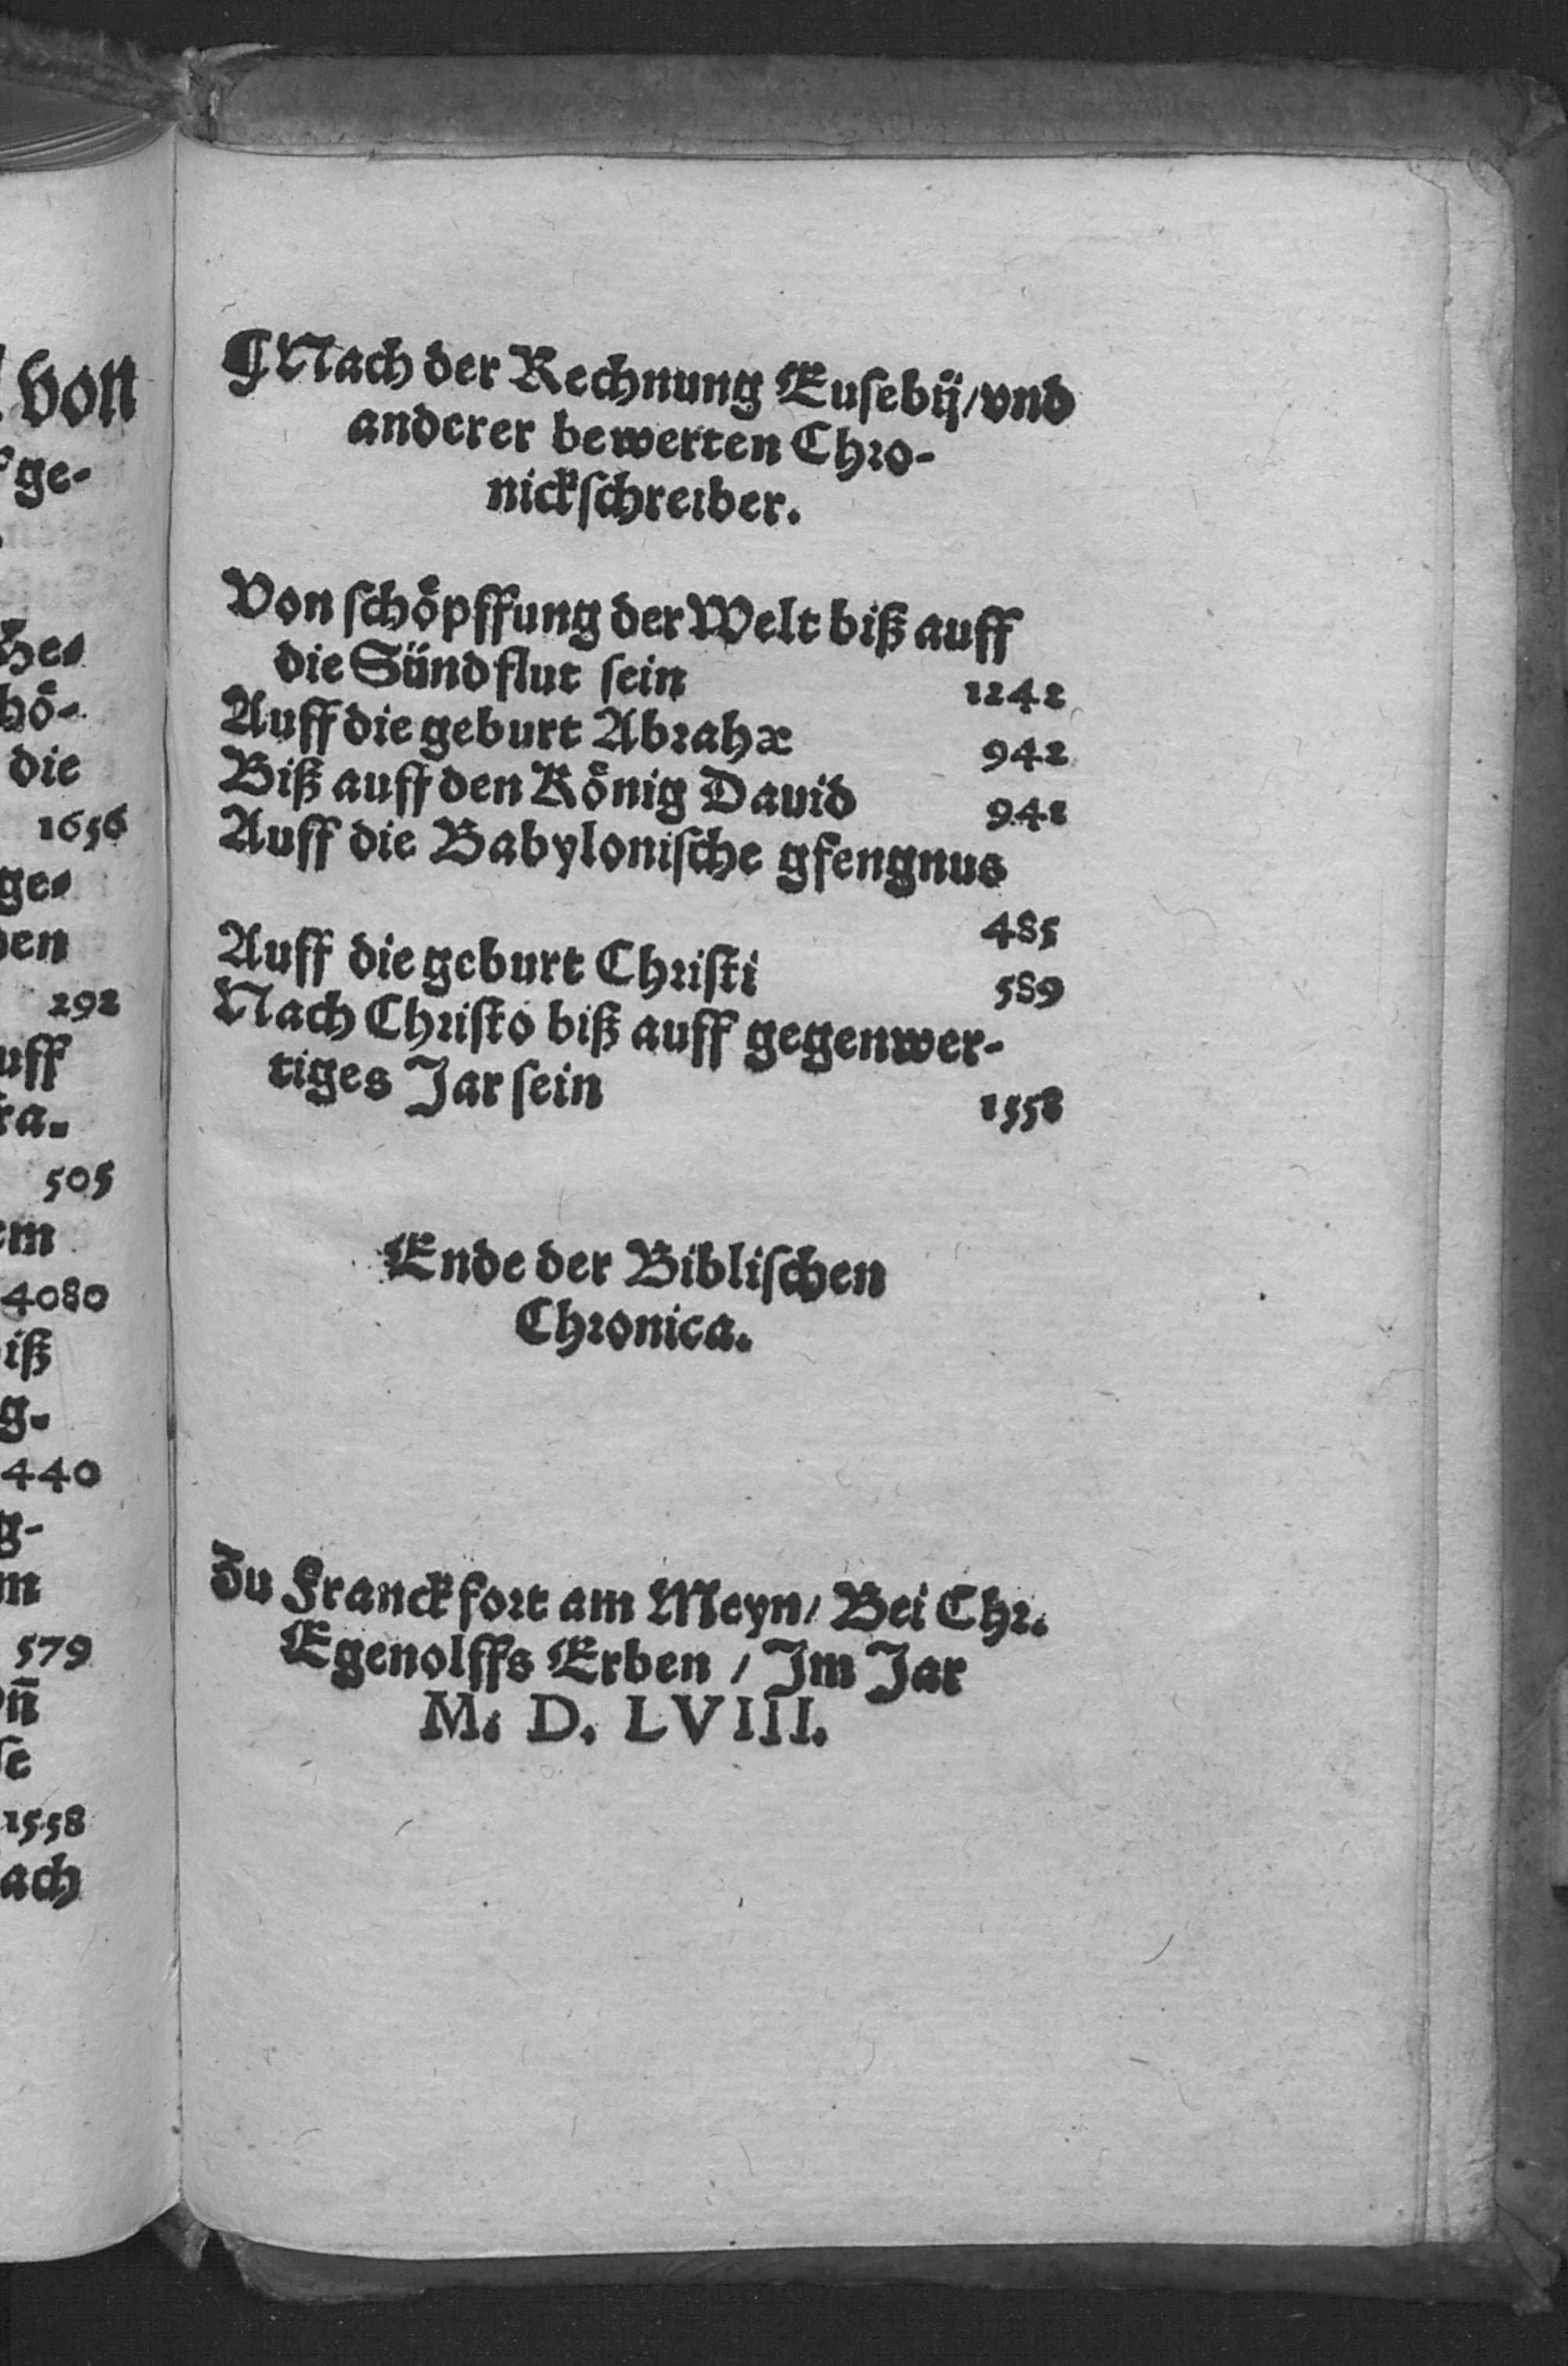 von
ge-
he-
hö-
die
1656
ge-
en
292
uff
ra-
505
em
4080
iß
g-
440
g-
m
579
on̄
se
1558
ach
¶Nach der Rechnung Euſebij/vnd
anderer bewerten Chro-
nickſchreiber.
Von ſchöpffung der Welt biß auff
die Sündflut ſein 1242
Auff die geburt Abrahæ 942
Biß auff den König Dauid 942
Auff die Babyloniſche gfengnus
485
Auff die geburt Chriſti 589
Nach Chriſto biß auff gegenwer-
tiges Jar ſein 1558
Ende der Bibliſchen
Chronica.
Zu Franckfort am Meyn/ Bei Chr.
Egenolffs Erben / Im Jar
M. D. LVIII.